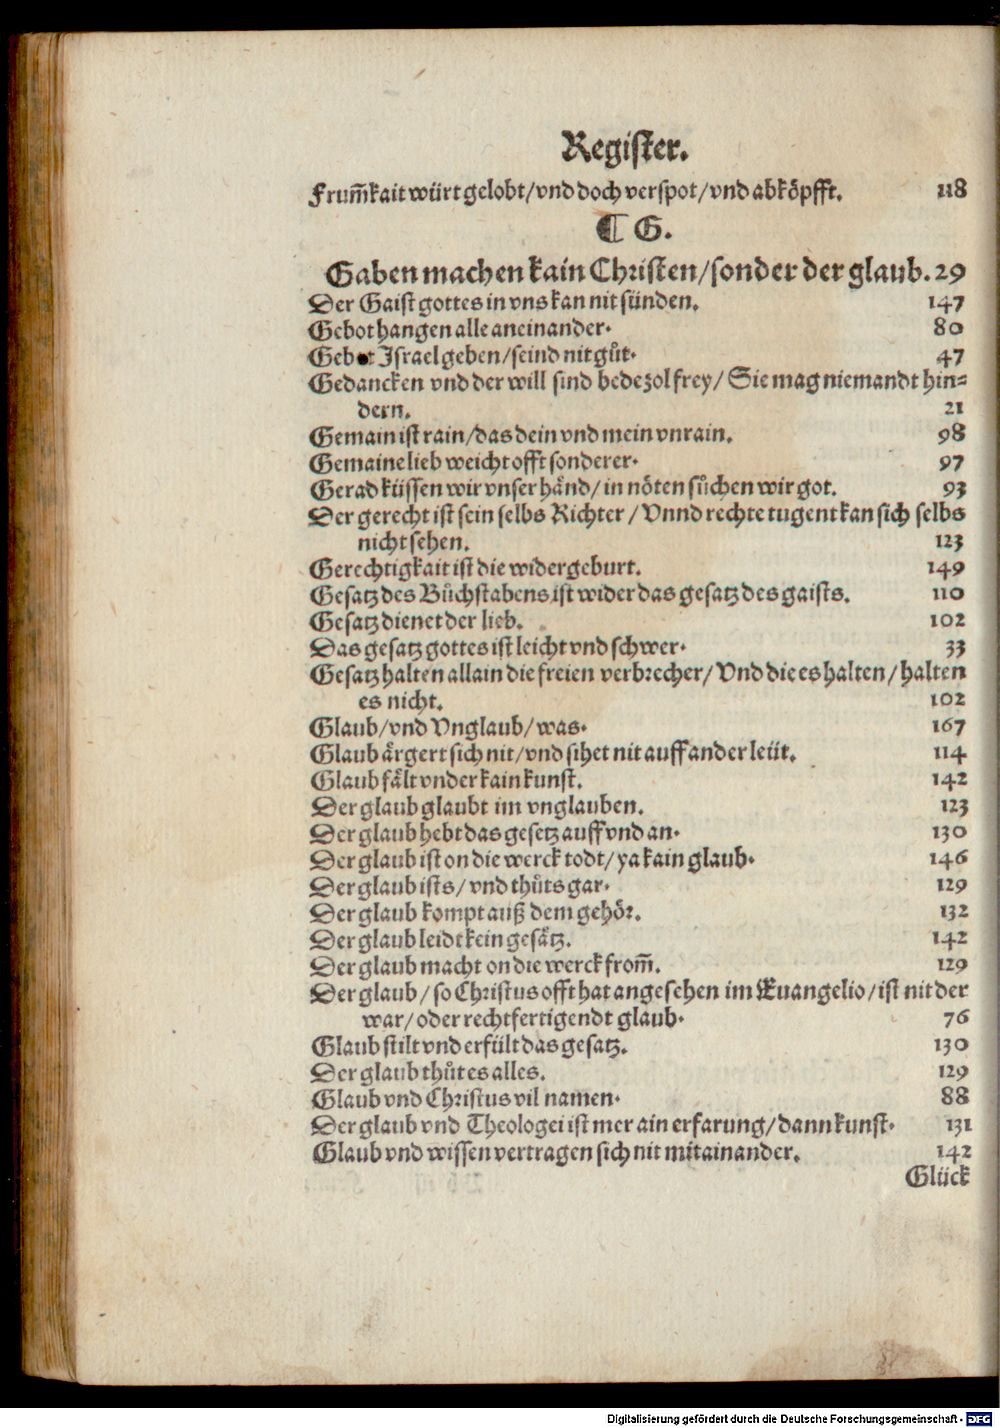 Register.
Frum̃kait würt gelobt/vnd doch verspot/vnd abköpfft. 118
¶ G.
Gaben machen kain Christen/sonder der glaub. 29
Der Gaist gottes in vns kan nit sünden. 147
Gebot hangen alle aneinander. 80
Gebot Israel geben/seind nit gůt. 47
Gedancken vnd der will sind bede zol frey/ Sie mag niemandt hin⸗
dern. 21
Gemain ist rain/das dein vnd mein vnrain. 98
Gemaine lieb weicht offt sonderer. 97
Gerad küssen wir vnser händ/in nöten sůchen wir got. 93
Der gerecht ist sein selbs Richter/ Vnnd rechte tugent kan sich selbs
nicht sehen. 123
Gerechtigkait ist die widergeburt. 149
Gesatz des Bůchstabens ist wider das gesatz des gaists. 110
Gesatz dienet der lieb. 102
Das gesatz gottes ist leicht vnd schwer. 33
Gesatz halten allain die freien verbrecher/ Vnd die es halten/halten
es nicht. 102
Glaub/vnd Vnglaub/was. 167
Glaub ärgert sich nit/vnd sihet nit auff ander leüt. 114
Glaub fält vnder kain kunst. 142
Der glaub glaubt im vnglauben. 123
Der glaub hebt das gesetz auff vnd an. 130
Der glaub ist on die werck todt/ya kain glaub. 146
Der glaub ists/vnd thůts gar. 129
Der glaub kompt auß dem gehör. 132
Der glaub leidt kein gesätz. 142
Der glaub macht on die werck from̃. 129
Der glaub/so Christus offt hat angesehen im Euangelio/ist nit der
war/oder rechtfertigendt glaub. 76
Glaub stilt vnd erfült das gesatz. 130
Der glaub thůt es alles. 129
Glaub vnd Christus vil namen. 88
Der glaub vnd Theologei ist mer ain erfarung/dann kunst. 131
Glaub vnd wissen vertragen sich nit mitainander. 142
Glück
Digitalisierung gefördert durch die Deutsche Forschungsgemeinschaft - DFG